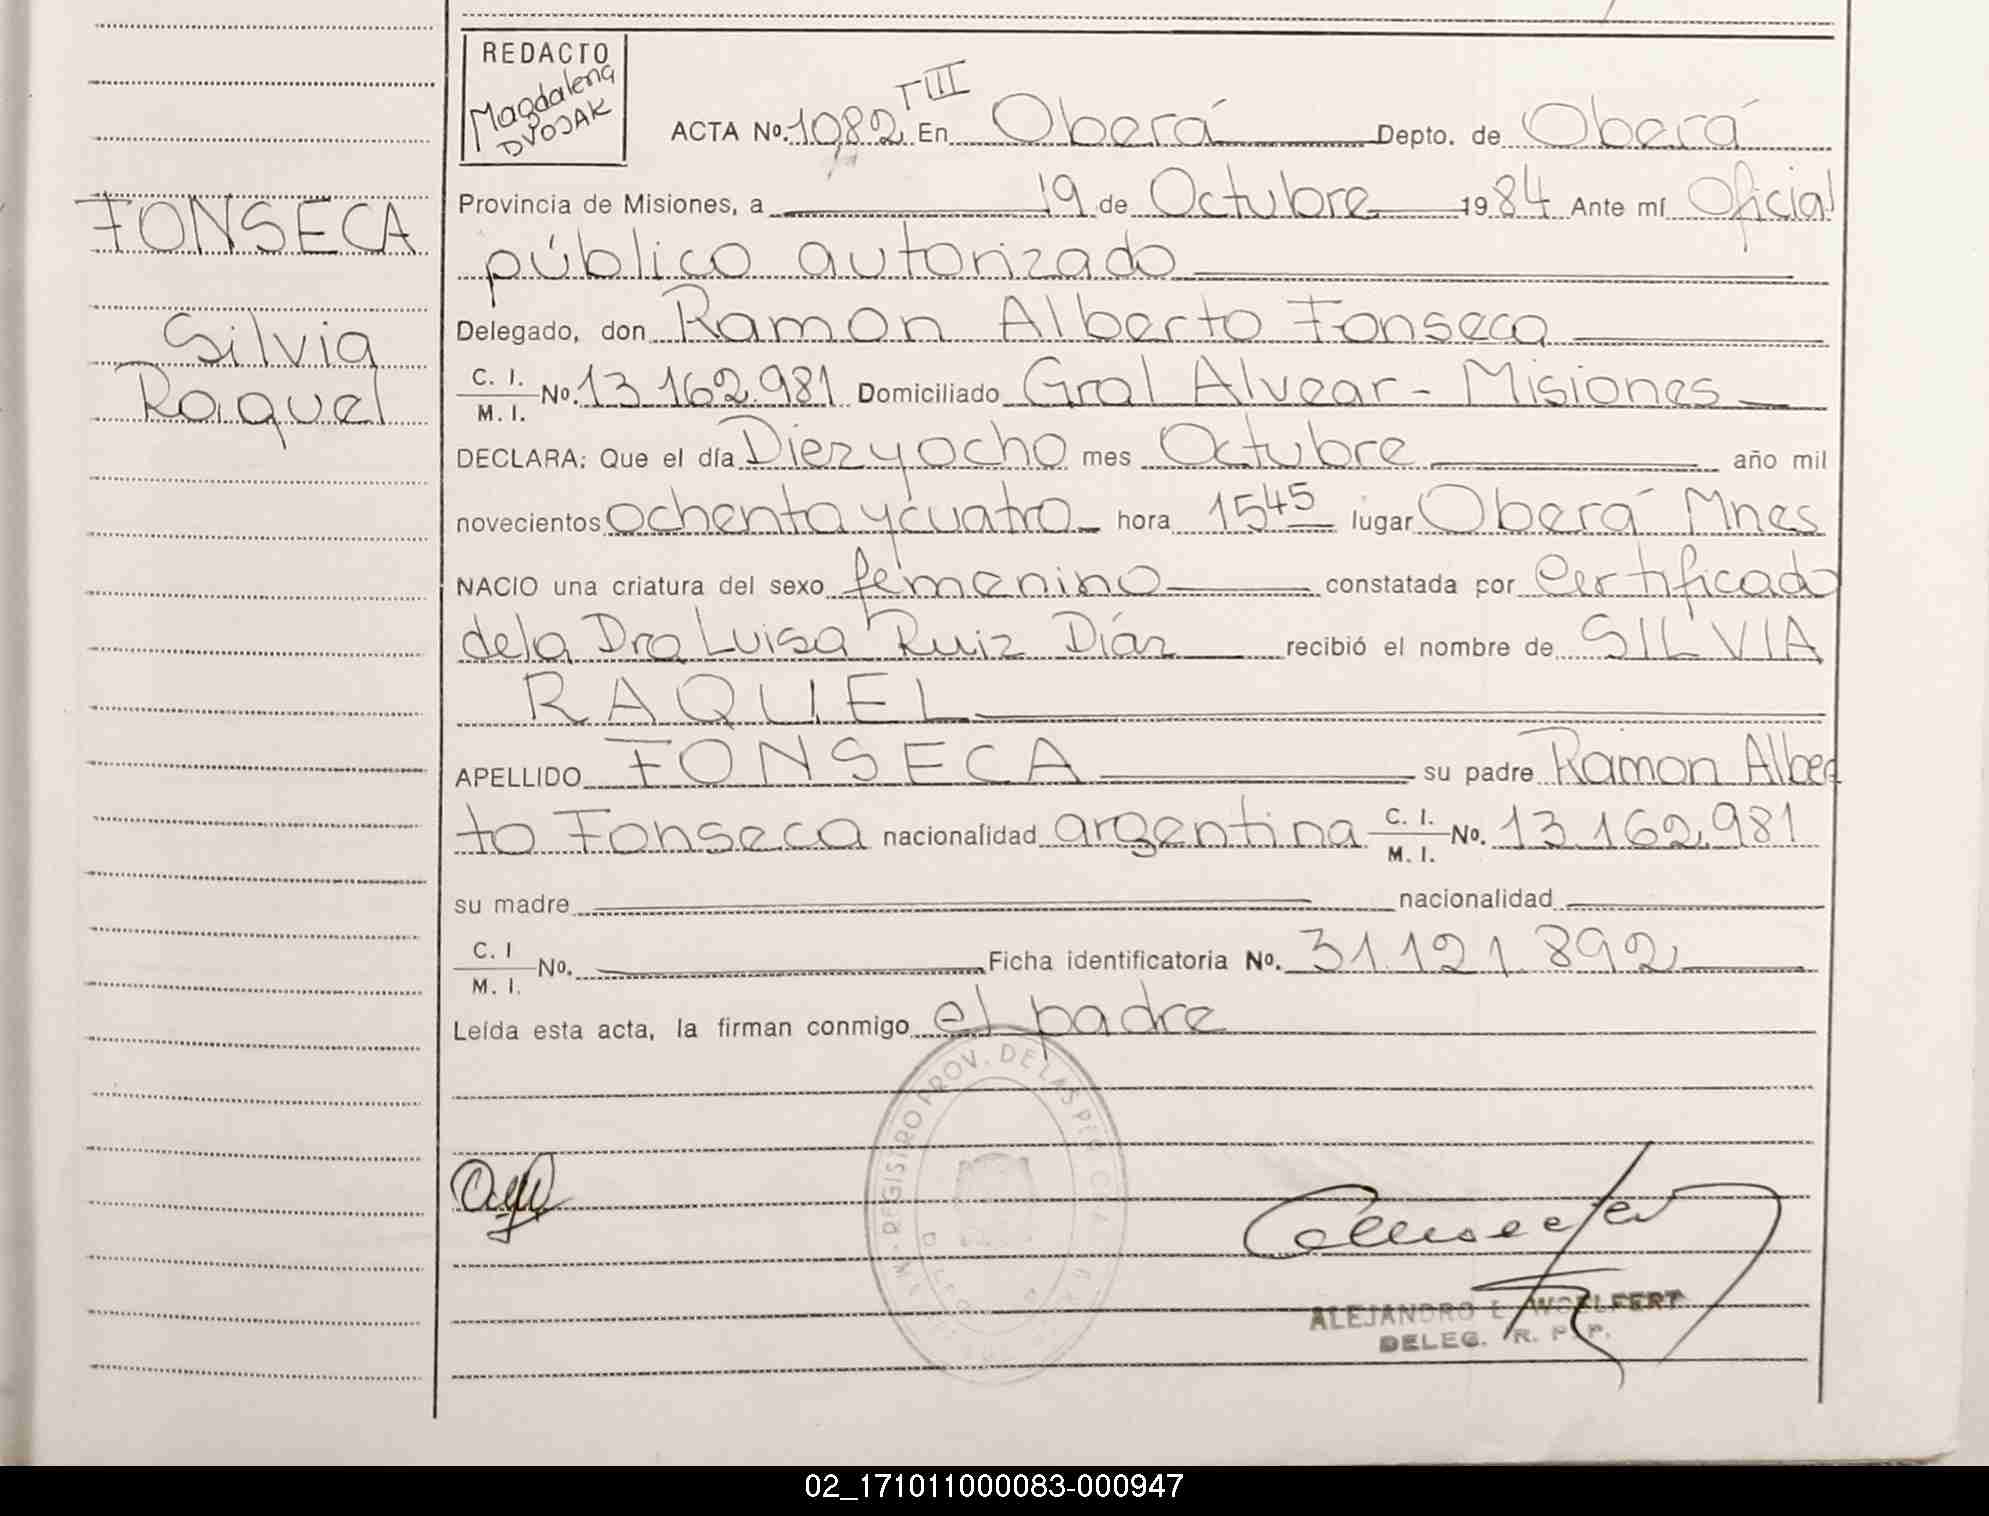 REDACTO
Magdalena
DVOJAK
ACTA Nº. 1082 TIII En Oberá Depto. de Oberá
Provincia de Misiones, a 19 de Octubre 1984 Ante mí Oficial
público autorizado
Delegado, don Ramon Alberto Fonseca
C. I. / M. I. Nº. 13.162.981 Domiciliado Gral Alvear - Misiones
DECLARA: Que el día Diez y ocho mes Octubre año mil
novecientos ochenta y cuatro hora 15 45 lugar Oberá Mnes
NACIO una criatura del sexo femenino constatada por Certificado
de la Dra Luisa Ruiz Díaz recibió el nombre de SILVIA
RAQUEL
APELLIDO FONSECA su padre Ramon Alber
to Fonseca nacionalidad argentina C. I. / M. I. Nº. 13.162.981
su madre nacionalidad
C. I / M. I. Nº. Ficha identificatoria Nº. 31.121.892
Leída esta acta, la firman conmigo el padre
FONSECA
Silvia
Raquel
REGISTRO PROV. DE LAS PER
ALEJANDRO L. WOELFERT
DELEG. R. P. P.
02_171011000083-000947